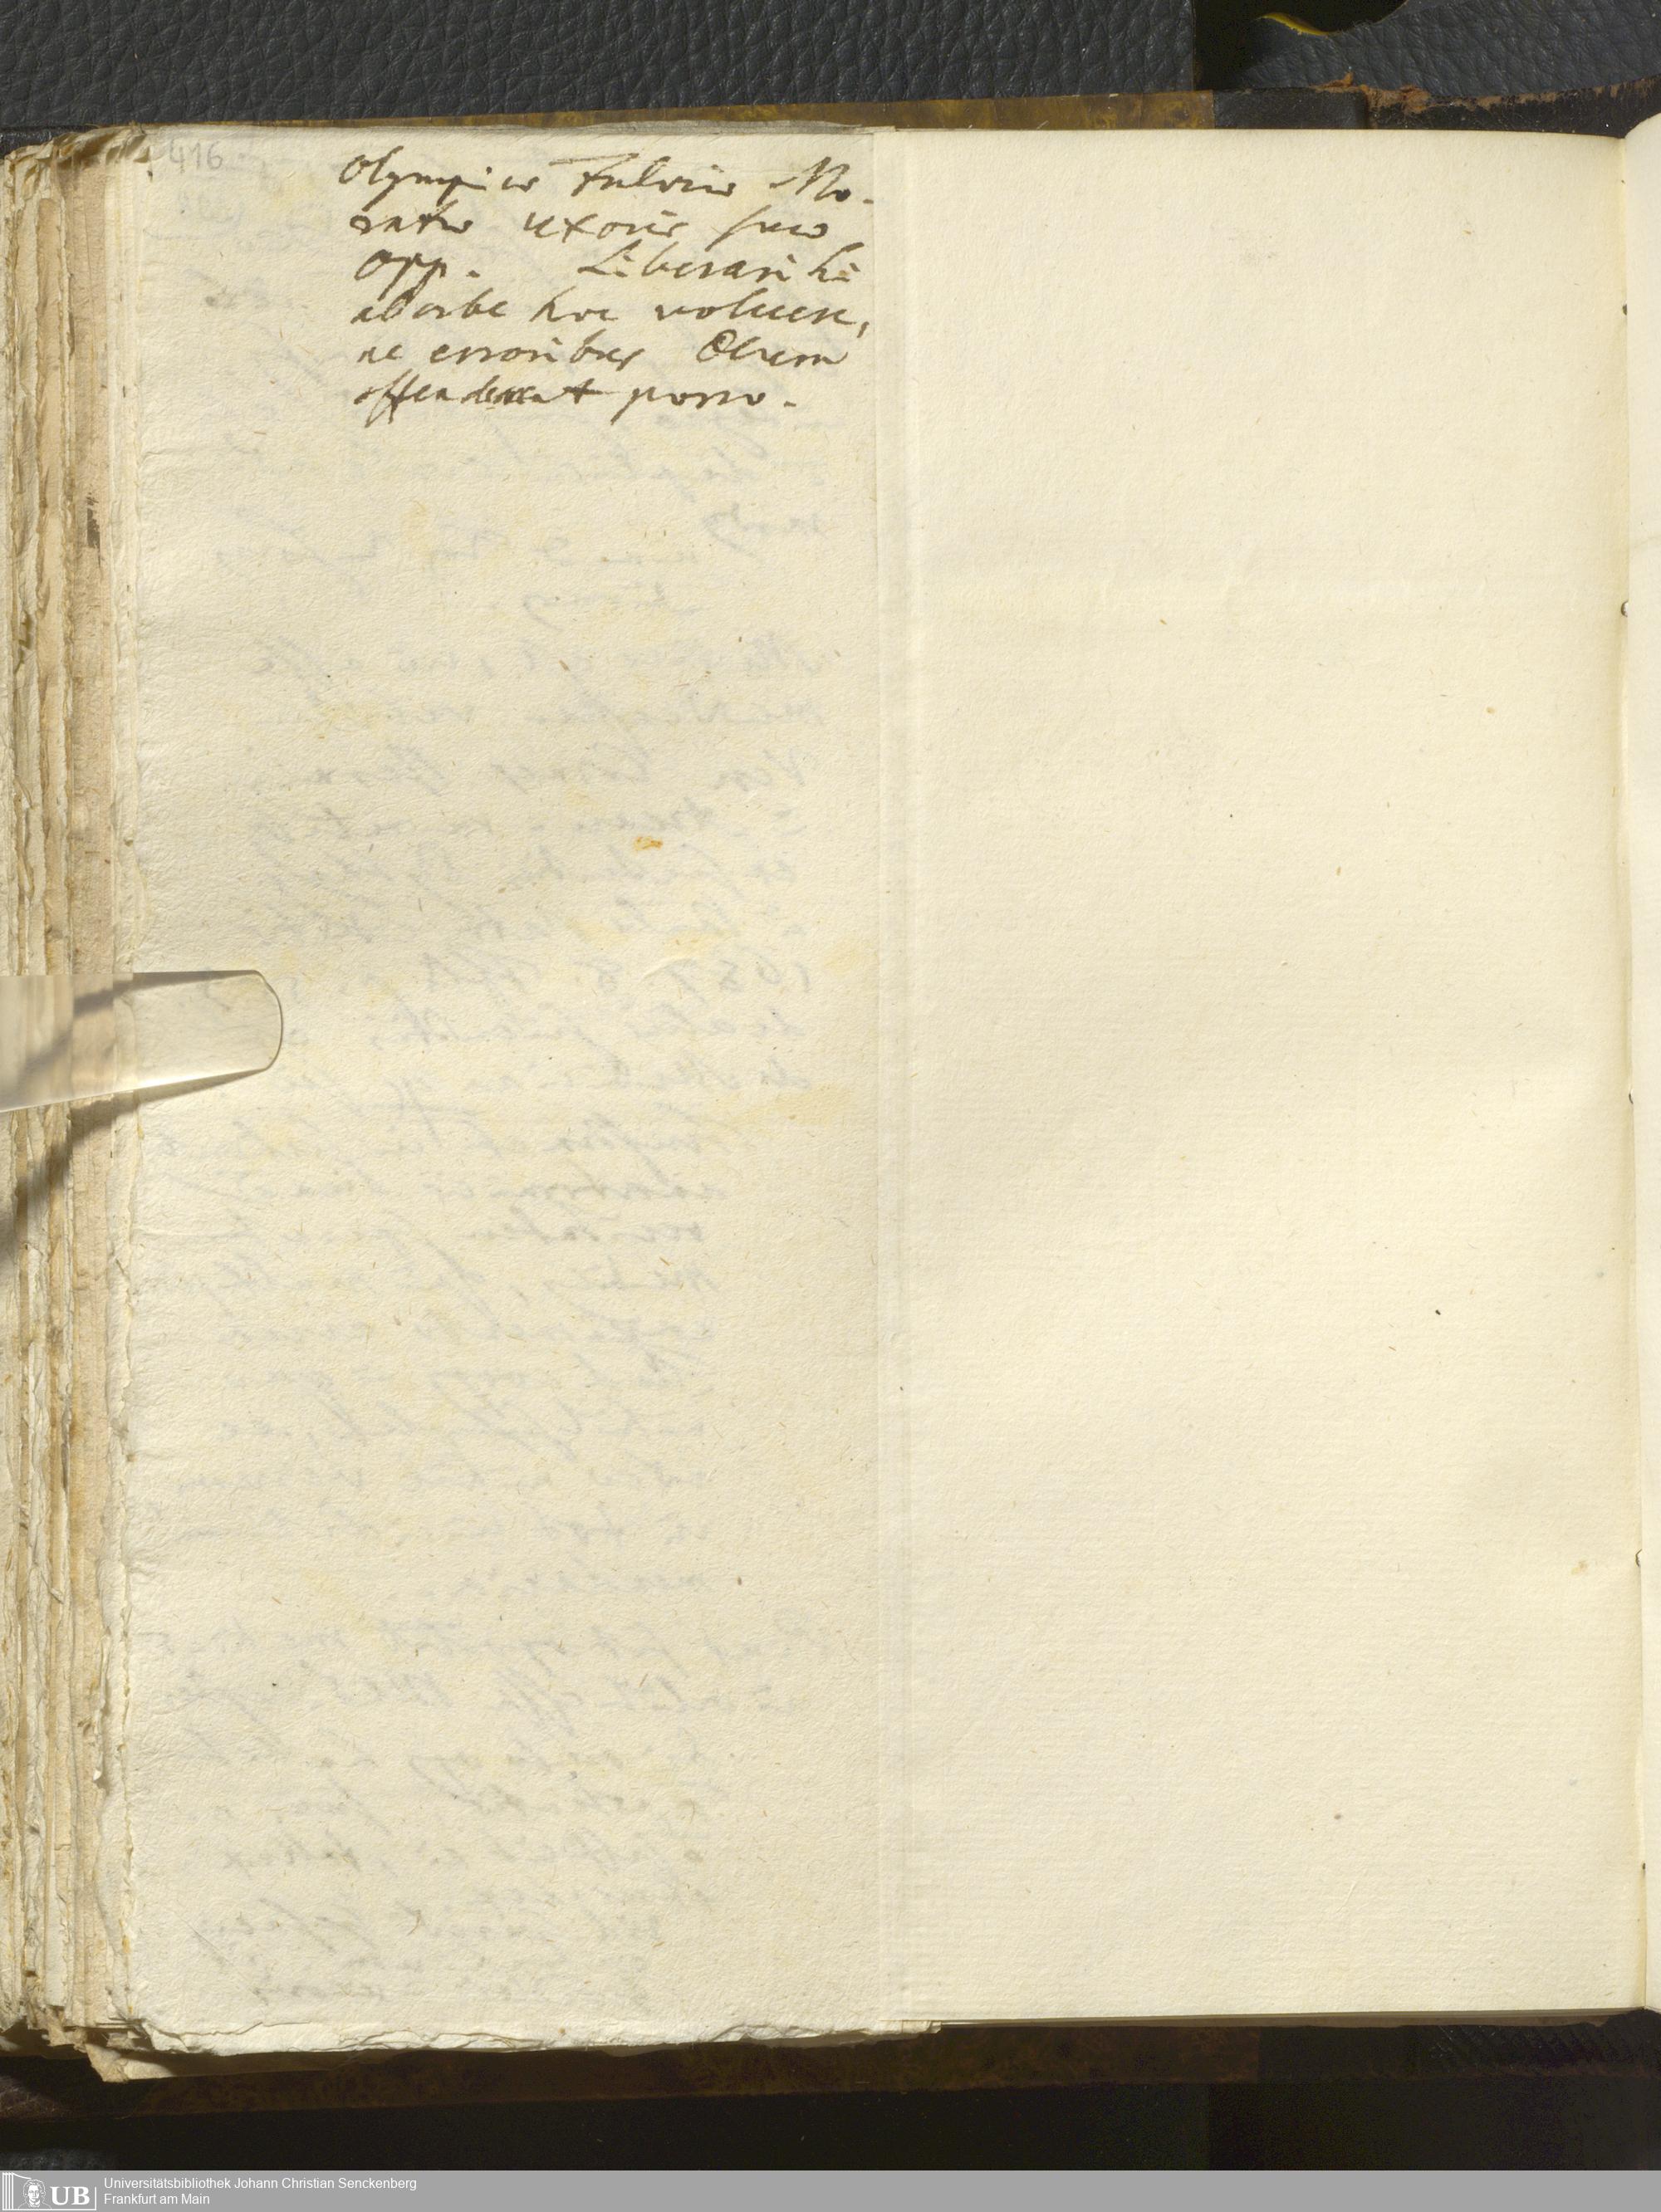 416
Olympiae Fulviae Mo-
ratae uxoris suae
opp. Liberari hi
ab orbe hoc voluere,
ne erroribus Deum
offenderent porro.
UB Universitätsbibliothek Johann Christian Senckenberg
Frankfurt am Main